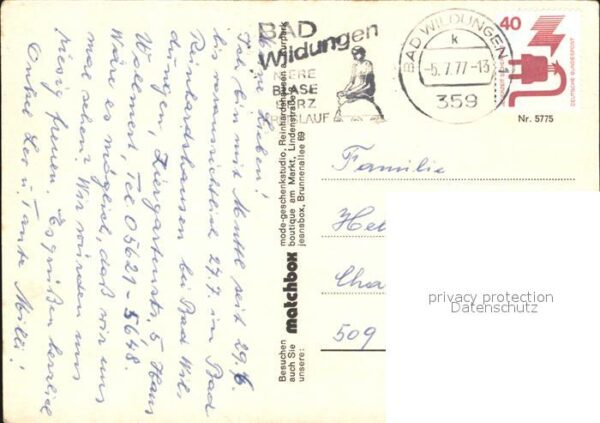 Meine Lieben!
Ich bin mit Muttl seit 29./6.
bis voraussichtlich 27.7. in Bad
Reinhardshausen bei Bad Wil-
dungen, Ziergartenstr. 5 Haus
Waldemert, Tel 05621-5648.
Wäre es möglich, daß wir uns
mal sehen? Wir würden uns
riesig freuen. Es grüßen herzlich
Onkel Leo u. Tante Milli!
Besuchen
auch Sie
unsere:
matchbox
mode-geschenkstudio, Reinhardshausen a. Kurpark
boutique am Markt, Lindenstraße
jeansbox, Brunnenallee 69
BAD
Wildungen
NIERE
BLASE
HERZ
KREISLAUF
BAD WILDUNGEN 1
k
-5.7.77-13
359
40
DEUTSCHE BUNDESPOST
Nr. 5775
Familie
509
privacy protection
Datenschutz